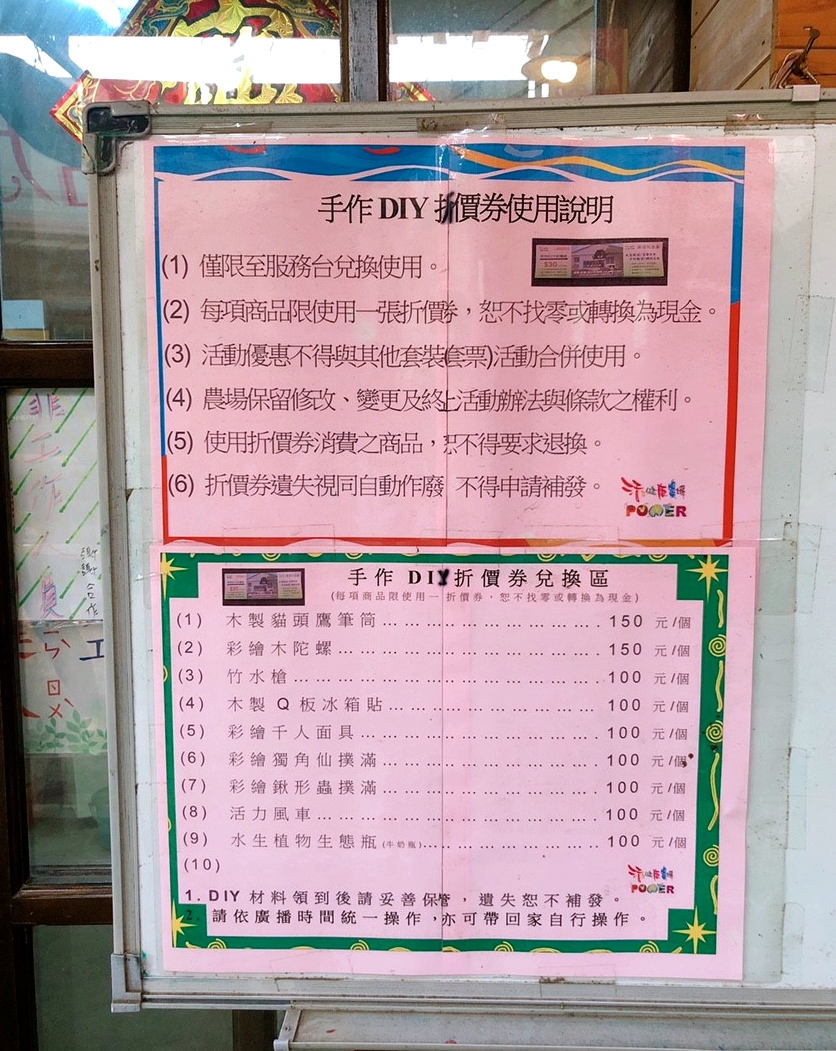 手作 DIY 折價券使用說明
(1) 僅限至服務台兌換使用。
(2) 每項商品限使用一張折價券，恕不找零或轉換為現金。
(3) 活動優惠不得與其他套裝(套票)活動合併使用。
(4) 農場保留修改、變更及終止活動辦法與條款之權利。
(5) 使用折價券消費之商品，恕不得要求退換。
(6) 折價券遺失視同自動作廢 不得申請補發。
POWER
手作 DIY 折價券兌換區
(每項商品限使用一 折價券，恕不找零或轉換為現金)
(1) 木製貓頭鷹筆筒………………………150 元/個
(2) 彩繪木陀螺……………………………150 元/個
(3) 竹水槍…………………………………100 元/個
(4) 木製 Q 板冰箱貼………………………100 元/個
(5) 彩繪千人面具…………………………100 元/個
(6) 彩繪獨角仙撲滿………………………100 元/個
(7) 彩繪鍬形蟲撲滿………………………100 元/個
(8) 活力風車………………………………100 元/個
(9) 水生植物生態瓶(牛奶瓶)………………100 元/個
(10)
POWER
1. DIY 材料領到後請妥善保管，遺失恕不補發。
2. 請依廣播時間統一操作，亦可帶回家自行操作。
謝謝合作